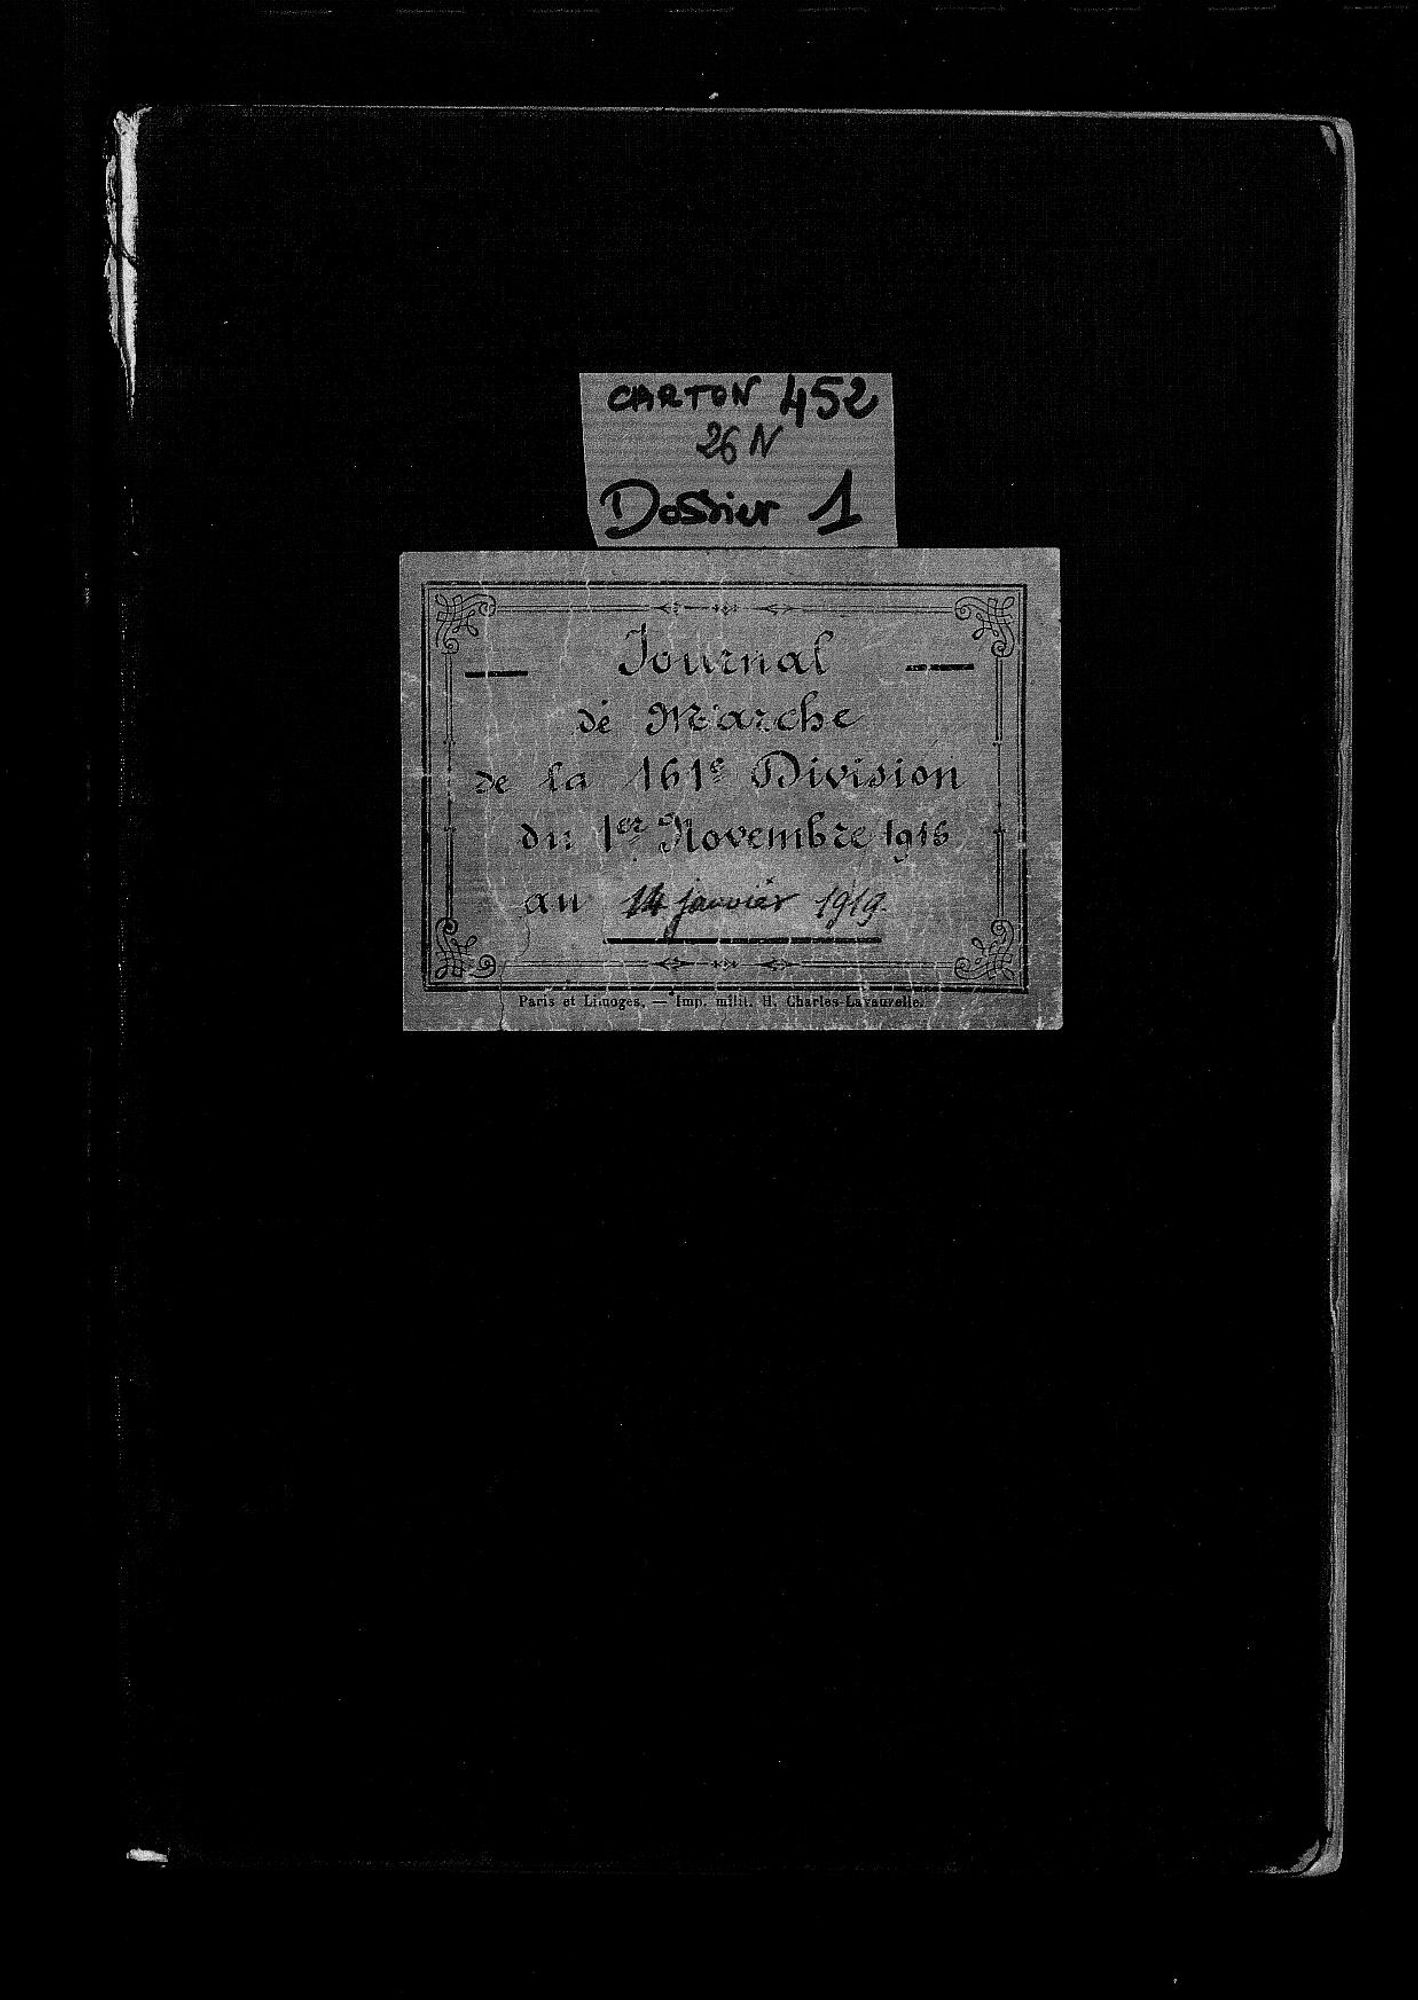 CARTON 452
26 N
Dossier 1
Journal
de Marche
de la 161e Division
du 1er Novembre 1916
au 14 janvier 1919.
Paris et Limoges. — Imp. milit. H. Charles-Lavauzelle.